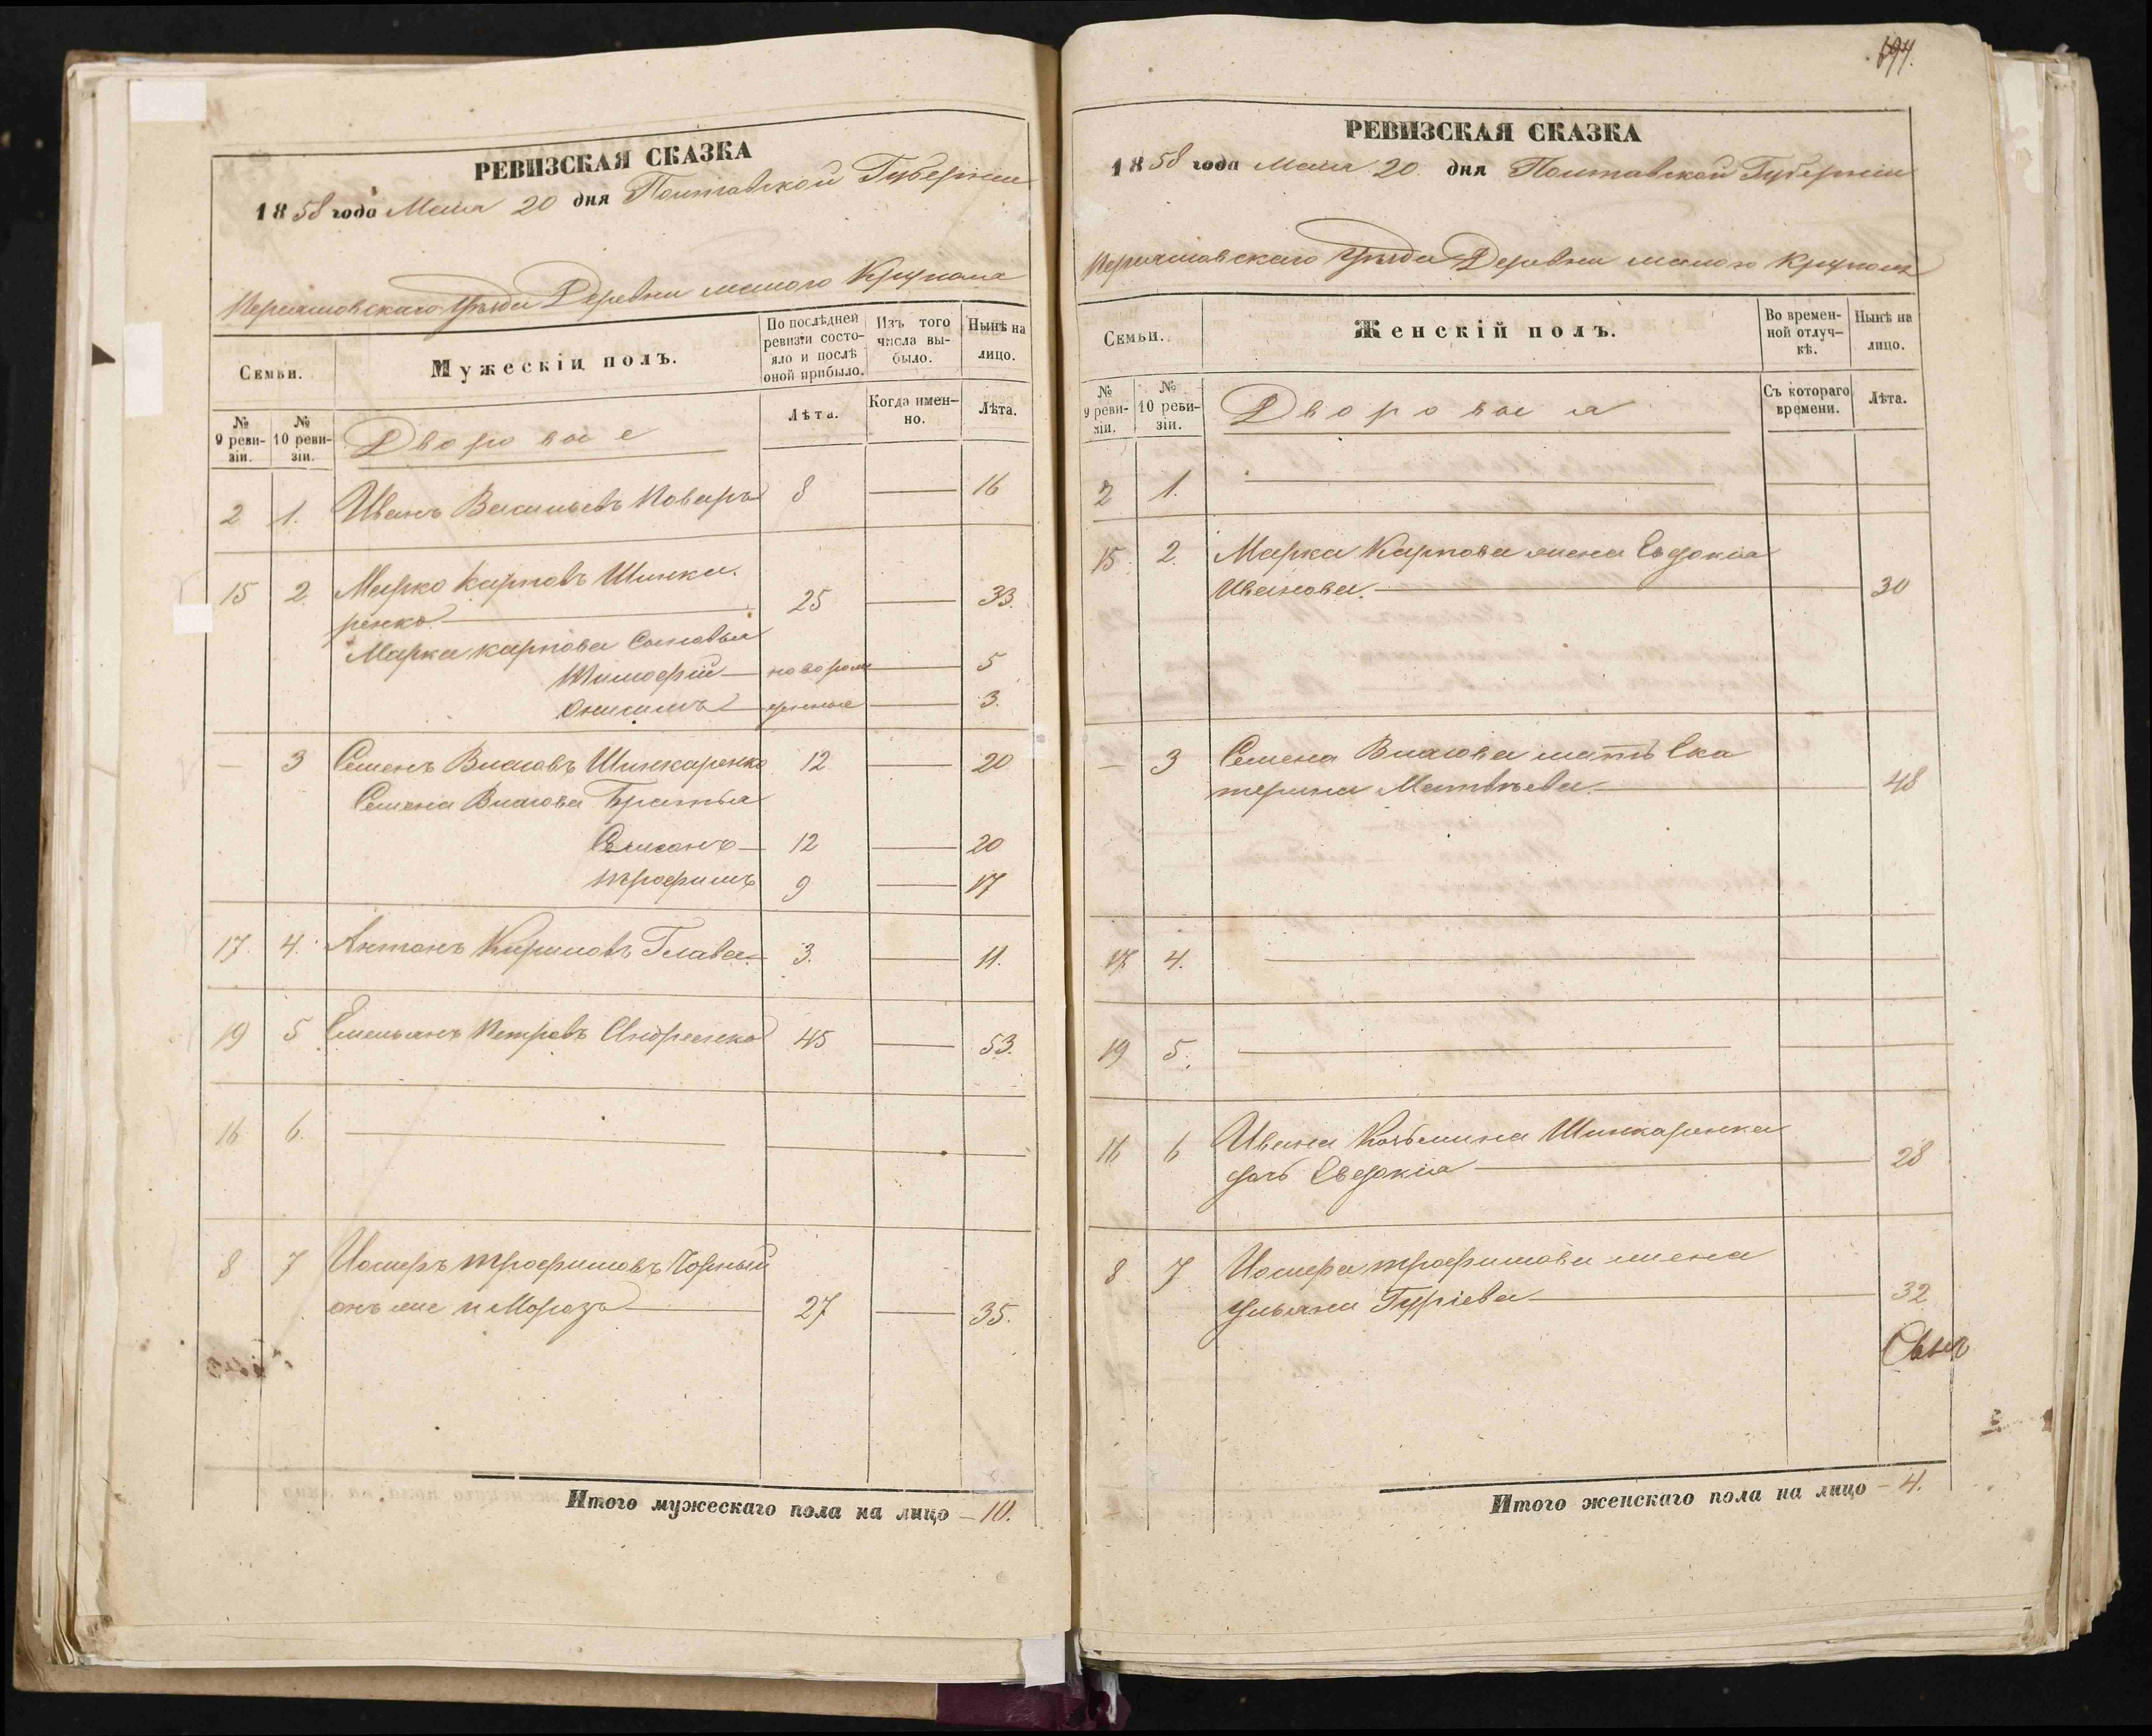 РЕВИЗСКАЯ СКАЗКА
1858 года Маия 20 дня Полтавской Губерніи
Переяславскаго Уѣзда Деревни малого Крупола
Семьи.
Мужескій полъ.
По послѣдней ревизіи состояло и послѣ оной прибыло.
Изъ того числа выбыло.
Нынѣ на лицо.
№ 9 ревизіи.
№ 10 ревизіи.
Дворовые
Лѣта.
Когда именно.
Лѣта.
2 1. Иванъ Васильевъ Коваръ 8 — 16
15 2. Марко Карповъ Шинка-
ренко. — 25 — 33.
Марка карпова Сыновья
Тимофій — новорож — 5
Онисимъ — денные — 3.
— 3 Семенъ Власовъ Шинкаренко 12 — 20
Семена Власова Братья
— 12 — 20
трофимъ 9 — 17
17. 4. Антонъ Кириловъ Глава — 3. — 11.
19 5 Емельянъ Петровъ Андреенко 45 — 53.
16 6. —
8 7 Иосифъ трофимовъ Чорный
онъ же и Морозъ — 27 — 35.
Итого мужескаго пола на лицо — 10.
РЕВИЗСКАЯ СКАЗКА
1858 года Маия 20. дня Полтавской Губерніи
Переяславскаго Уѣзда Деревни малого Крупола
Семьи.
Женскій полъ.
Во временной отлучкѣ.
Нынѣ на лицо.
№ 9 ревизіи.
№ 10 ревизіи.
Дворовыя
Съ котораго времени.
Лѣта.
2 1. —
15. 2. Марка Карпова жена Евдокія
Иванова. — 30
— 3 Семена Власова мать Ека
терина Матвѣева. — 48
17 4. —
19 5. —
16 6 Ивана Козьмина Шинкаренка
дочь Евдокія — 28
8 7 Иосифа трофимова жена
Ульяна Гуріева — 32
Итого женскаго пола на лицо — 4.